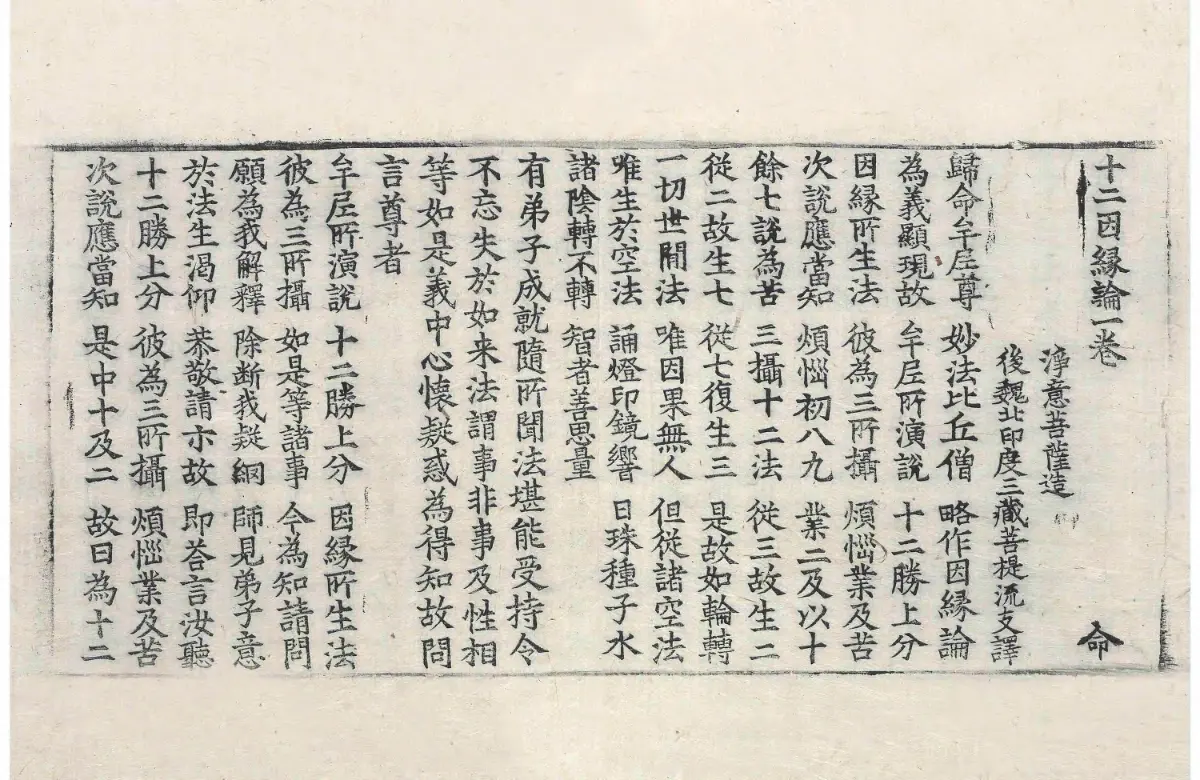 十二因縁論一卷 命
淨意菩薩造
後魏北印度三藏菩提流支譯
歸命牟尼尊 妙法比丘僧 略作因縁論
為義顯現故 牟尼所演說 十二勝上分
因縁所生法 彼為三所攝 煩惱業及苦
次說應當知 煩惱初八九 業二及以十
餘七說為苦 三攝十二法 從三故生二
從二故生七 從七復生三 是故如輪轉
一切世間法 唯因果無人 但從諸空法
唯生於空法 誦燈印鏡響 日珠種子水
諸陰轉不轉 智者善思量
有弟子成就隨所聞法堪能受持令
不忘失於如来法謂事非事及性相
等如是義中心懷疑惑為得知故問
言尊者
牟尼所演說 十二勝上分 因縁所生法
彼為三所攝 如是等諸事 今為知請問
願為我解釋 除断我疑網 師見弟子意
於法生渴仰 恭敬請亦故 即荅言汝聽
十二勝上分 彼為三所攝 煩惱業及苦
次說應當知 是中十及二 故曰為十二